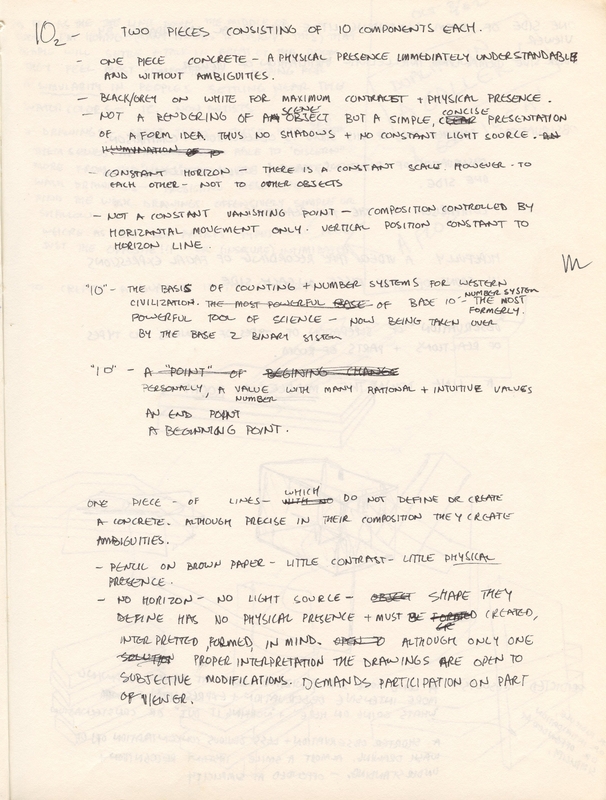 10₂ - TWO PIECES CONSISTING OF 10 COMPONENTS EACH.
- ONE PIECE CONCRETE - A PHYSICAL PRESENCE IMMEDIATELY UNDERSTANDABLE
AND WITHOUT AMBIGUITIES.
- BLACK/GREY ON WHITE FOR MAXIMUM CONTRAST + PHYSICAL PRESENCE.
SCENE CONCISE
- NOT A RENDERING OF AN OBJECT BUT A SIMPLE, CLEAR PRESENTATION
OF A FORM IDEA THUS NO SHADOWS + NO CONSTANT LIGHT SOURCE. - AN
ILLUMINATION OF TO
- CONSTANT HORIZON - THERE IS A CONSTANT SCALE HOWEVER - TO
EACH OTHER - NOT TO OTHER OBJECTS
- NOT A CONSTANT VANISHING POINT - COMPOSITION CONTROLLED BY
HORIZANTAL MOVEMENT ONLY. VERTICAL POSITION CONSTANT TO
HORIZON LINE.
"10" - THE BASIS OF COUNTING + NUMBER SYSTEMS FOR WESTERN
NUMBER SYSTEM
CIVILIZATION. THE MOST POWERFUL BASE OF BASE 10 - THE MOST
FORMERLY.
POWERFUL TOOL OF SCIENCE - NOW BEING TAKEN OVER
BY THE BASE 2 BINARY SISTEM
"10" - A "POINT" OF BEGINING CHANGE
PERSONALLY, A VALUE WITH MANY RATIONAL + INTUITIVE VALUES
NUMBER
AN END POINT
A BEGINNING POINT.
WHICH
ONE PIECE - OF LINES - WITH NO DO NOT DEFINE OR CREATE
A CONCRETE. ALTHOUGH PRECISE IN THEIR COMPOSITION THEY CREATE
AMBIGUITIES.
- PENCIL ON BROWN PAPER - LITTLE CONTRAST - LITTLE PHYSICAL
PRESENCE.
- NO HORIZON - NO LIGHT SOURCE - OBJECT SHAPE THEY
DEFINE HAS NO PHYSICAL PRESENCE + MUST BE FORMED CREATED,
INTERPRETTED, FORMED, IN MIND. OPEN TO ALTHOUGH ONLY ONE
SOLUTION PROPER INTERPRETATION THE DRAWINGS ARE OPEN TO
SUBJECTIVE MODIFICATIONS. DEMANDS PARTICIPATION ON PART
OF VIEWER.